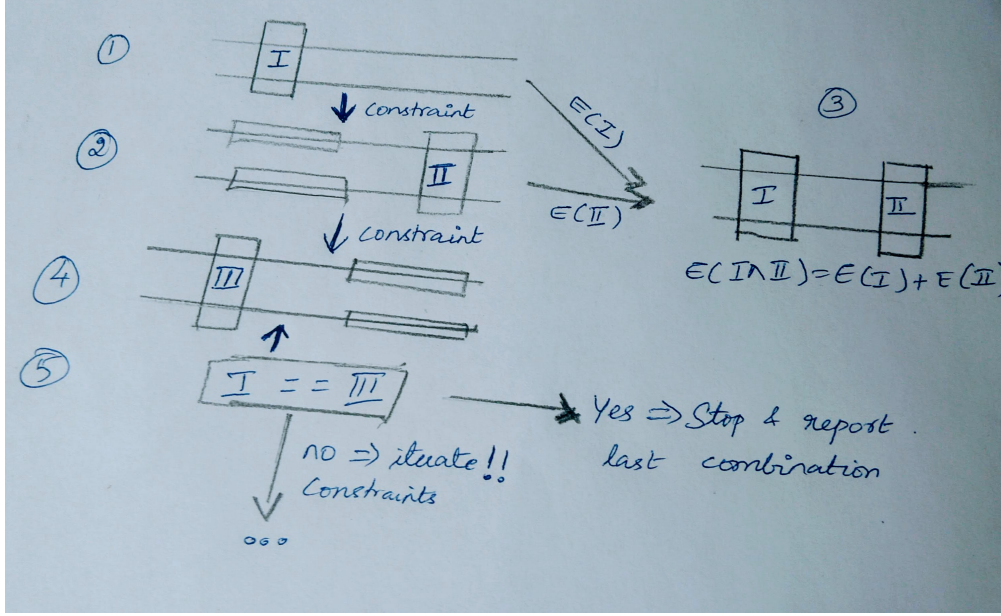 ①
I
constraint
②
II
E(I)
E(II)
③
I
II
E(I∩II)=E(I)+E(II)
constraint
④
III
⑤
I == III
Yes ⇒ Stop & report.
last combination
no ⇒ iterate!!
Constraints
ooo